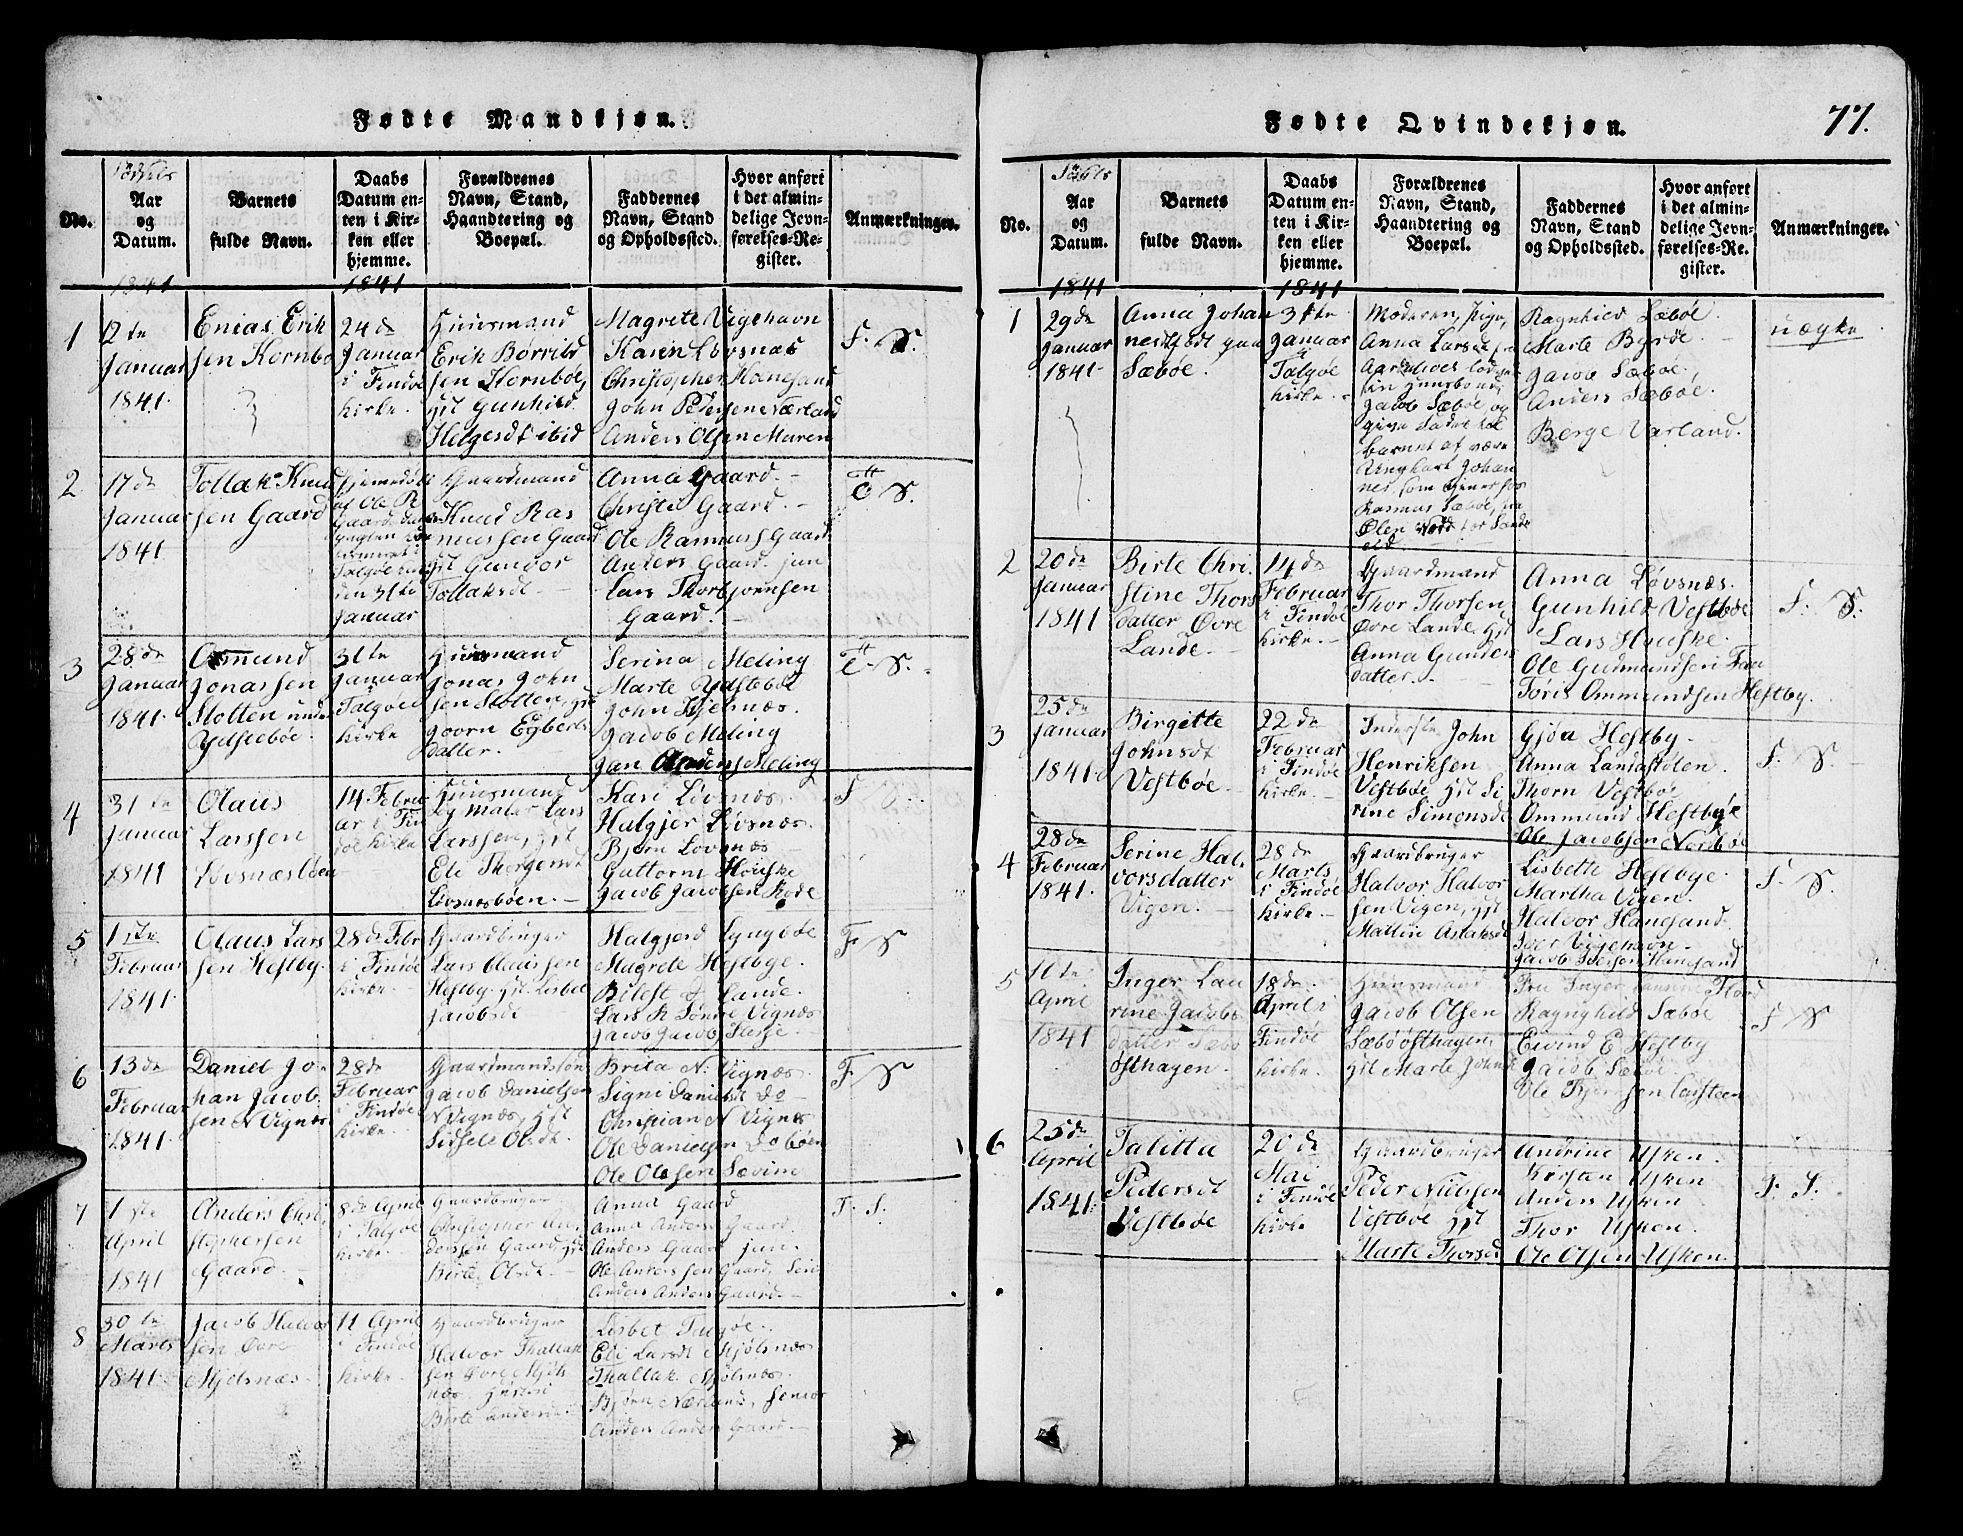 Fødte Mandkjøn.
No.
Fødsels
Aar
og
Datum.
Barnets
fulde Navn.
Daabs
Datum en-
ten i Kir-
ken eller
hjemme.
Forældrenes
Navn, Stand,
Haandtering og
Boepæl.
Faddernes
Navn, Stand
og Opholdssted.
Hvor anført
i det almin-
delige Jevn-
førelses-Re-
gister.
Anmærkninger.
1841
1841
1
12te
Januar
1841.
Enias Erik
sen Kornbo
24de
Januar
i Findøe
Kirke.
Huusmand
Erik Børrild
sen Kornboe,
hst Gunhild
Helgesdt ibid
Magrete Vigehavn
Karen Løvsnæs
Christopher Hanesand
John Pedersen Nærland
Anders Olsen Maren
F. S.
2
17de
Januar
1841
Tollak Knud
sen Gaard
af Ole R.
Gaard
den 31te
Januar
Gaardmand
Knud Ras
mussen Gaard
hst Gundor
Tollaksdt
Anna Gaard.
Christi Gaard.
Ole Rasmuss Gaard
Anders Gaard jun
Lars Thorbjornsen
Gaard.
T S.
3
28de
Januar
1841.
Osmund
Jonassen
Slotten und
Ydstebøe.
31te
Januar
Talgøe
Kirke
Huusmand
Jonas John
sen Slotten, hst
Joorn Egberts
datter.
Serina Meling
Marte Ydstebøe
John Fjelnæs.
Jacob Meling
Jan Meling
T. S.
4
31te
Januar
1841
Olaus
Larssen
Løvsnæsbøen
14 Febru
ar i Fin
døe Kirke
Huusmand
og Maler Lars
Larssen, hst
Eli Thorgersdt
Løvsnæsbøen.
Kari Løvsnæs.
Halgjer Løvsnæs.
Bjørn Løvsnæs
Guttorm Houske
Jacob Jacobsen Rode
F
5
1ste
Februar
1841.
Olaus Lars
sen Hestby.
28de Febr
i Findøe
Kirke.
Gaardbruger
Lars Olaussen
Hestby. hst Lisbet
Jacobsdt
Halgjerd Lyngøe
Magrete Hestbye.
Lande.
Vignæs
F S
6
13de
Februar
1841.
Daniel Jo-
han Jacob
sen N Vignes
28de
Februar
i Findøe
Kirke.
Gaardmandssøn
Jacob Danielsen
N Vignæs, hst
Sidsele Olsdt.
Brita N. Vignæs.
Signe Danielsdt Do
Christian N Vignæs
Ole Danielsen Do bøen
Ole Olsen Sævine
F S
7
1ste
April
1841
Anders Chri
stophersen
Gaard.
8de April
i Talgøe
Kirke.
Gaardbruger
Christopher An
dersen Gaard, hst
Birte Olsdt.
Anna Gaard
Anna Anders Gaard.
Anders Gaard jun.
Ole Anderssen Gaard, Sen
Anders Anders Gaard.
F. S.
8
30te
Marts
1841.
Jacob Halvor
sen Øvre
Mjelsnæs.
11 April
i Findøe
Kirke.
Gaardbruger
Halvor Thollak
sen Øvre Mjøls
næs. Hustru
Birte Andersd.
Lisbet Talgøe.
Eli Larsdt Mjølsnæs
Thollak Mjølsnæs.
Bjørn Nærland, Senior
Anders Anders Gaard.
Fødte Qvindekjøn.
77.
No.
Fødsels
Aar
og
Datum.
Barnets
fulde Navn.
Daabs
Datum en-
ten i Kir-
ken eller
hjemme.
Forældrenes
Navn, Stand,
Haandtering og
Boepæl.
Faddernes
Navn, Stand
og Opholdssted.
Hvor anført
i det almin-
delige Jevn-
førelses-Re-
gister.
Anmærkninger.
1841
1841
1
29de
Januar
1841
Anna Johan
nesdt
Sæbøe.
31te
Januar
Talgøe
Kirke.
Moderen, Pige,
Anna Larsdt
Jacob Sæbøe, og
barnet at være
Ungkarl Johan
nes, som tjener hos
Rasmus Sæbøe, fra
Ølen
Ragnhild Sæbøe.
Marte Byrøe.
Jacob Sæbøe.
Anders Sæbøe.
Berge Varland.
uægte.
2
20de
Januar
1841
Birte Chri
stine Thors
datter Øvre
Lande.
14de
Februar
i Findøe
Kirke.
Gaardmand
Thor Thorsen,
Øvre Lande, hst
Anna Gunders
datter.
Anna Løvsnæs.
Gunhild Vestbøe
Lars Houske.
Ole Gudmundsen
Tøris Ommundsen Hestby.
F. S.
3
25de
Januar
1841
Birgitte
Johnsdt
Vestbøe.
22de
Februar
i Findøe
Kirke.
Inderste John
Henriksen
Vestbøe, hst Si
rine Simonsdt
Gjøa Hestby.
Anna Landastølen.
Thorn Vestbøe
Ommund Hestbye
Ole Jacobsen Nordbøe
F. S.
4
28de
Februar
1841.
Serine Hal
vorsdatter
Vigen.
28de
Marts
i Findøe
Kirke.
Gaardbruger
Halvor Halvor
sen Vigen, hst
Mallene Aslaksdt
Lisbette Hestbye.
Martha Vigen.
Halvor Hanesand.
Iver Vigehavn.
Jacob Iversen Hanesand
F. S.
5
11te
April
1841
Inger Lau
rine Jacobs
datter Sæbø
østhagen.
18de
April i
Findøe
Kirke.
Huusmand
Jacob Olsen
Sæbøøsthagen,
hst Marte Johns
Ragnghild Sæbøe
Eivind E Hestby
Jacob Sæbøe.
F S
6
25de
April
1841.
Talitta
Pedersdt
Vestbøe
20de
Mai
i Findøe
Kirke
Gaardbruger
Peder Nielssen
Vestbøe hst
Marte Thorsd
Andrine Usken.
Kirsten Usken
Anders Usken
Thor Usken.
Ole Olsen Usken.
F. S.